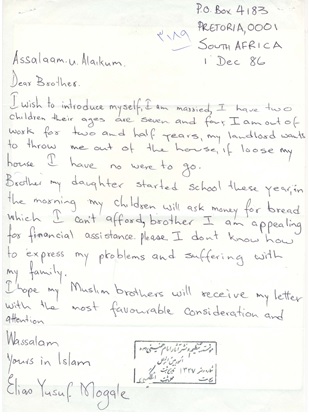 P.O. Box 4183
PRETORIA, 0001
SOUTH AFRICA
1 Dec 86
٣١٨٩
Assalaam. u. Alaikum.
Dear Brothers.
I wish to introduce myself, I am married, I have two
children their ages are seven and four, I am out of
work for two and half years, my landlord wants
to throw me out of the house, if loose my
house I have no were to go.
Brother my daughter started school these year, in
the morning my children will ask money for bread
which I can't afford, brother I am appealing
for financial assistance. please I dont know how
to express my problems and suffering with
my family.
I hope my Muslim brothers will receive my letter
with the most favourable consideration and
attention
Wassalam
Yours in Islam
Elias Yusuf Mogale